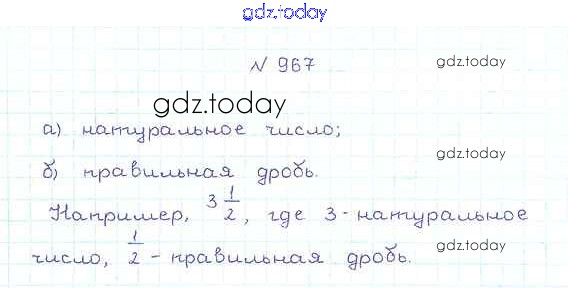 gdz.today
N 967
gdz.today
gdz.today
а) натуральное число;
gdz.today
б) правильная дробь.
Например, 3 1/2, где 3 - натуральное
gdz.today
число, 1/2 - правильная дробь.